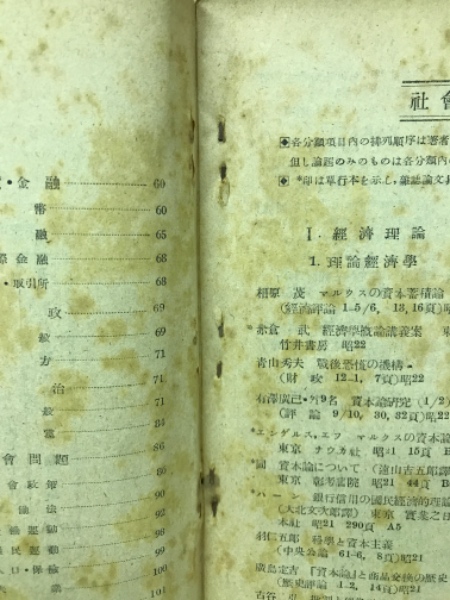 ・金融 60
幣 60
融 65
際金融 66
・取引所 68
政 69
般 69
方 71
治 71
般 71
黨 84
會問題 86
會政策 86
働法 90
働運動 92
民運動 99
人口・保險 100
業 101
社會
各分類項目內の排列順序は著者
但し論題のみのものは各分類內
*印は單行本を示し、雜誌論文
Ⅰ. 經濟理論
1. 理論經濟學
相原 茂 マルクスの資本蓄積論
(經濟評論 1–5/6, 13,16頁)昭
赤倉 武 經濟學概論講義案
竹井書房 昭22
靑山秀夫 戰後恐慌の機構
(財政 12–1, 7頁)昭22
石澤廣己・外9名 資本論硏究 (1/2)
(評論 9/10, 30, 32頁)昭22
*エンゲルス,エフ マルクスの資本論
東京 ナウカ社 昭21 15頁 B
*同 資本論について (遠山吉五郞譯)
東京 彰考書院 昭21 44頁 B
*ハーン 銀行信用の國民經濟的理論
(大北文次郞譯) 東京 實業之日
本社 昭21 290頁 A5
羽仁五郞 科學と資本主義
(中央公論 61–6, 8頁)昭21
廣島定吉 『資本論』と商品交換の歷史
(歷史評論 1–2, 14頁)昭21